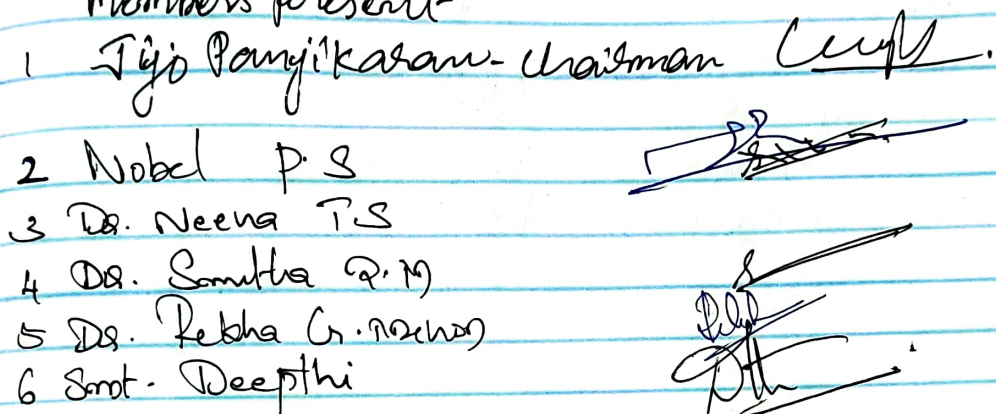 Members present-
1 Jijo Panjikaran - Chairman
2 Nobel P.S
3 Dr. Neena T.S
4 Dr. Smitha R.M
5 Dr. Rekha G. Menon
6 Smt. Deepthi